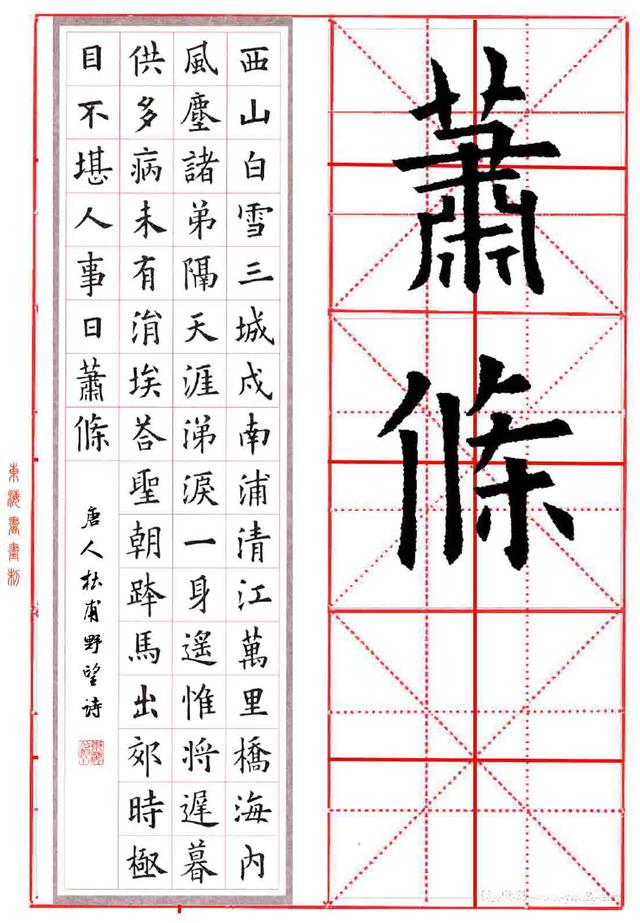 蕭條
西山白雪三城戍南浦清江萬里橋海内
風塵諸弟隔天涯涕淚一身遙惟將遲暮
供多病未有涓埃荅聖朝跨馬出郊時極
目不堪人事日蕭條
唐人杜甫野望詩